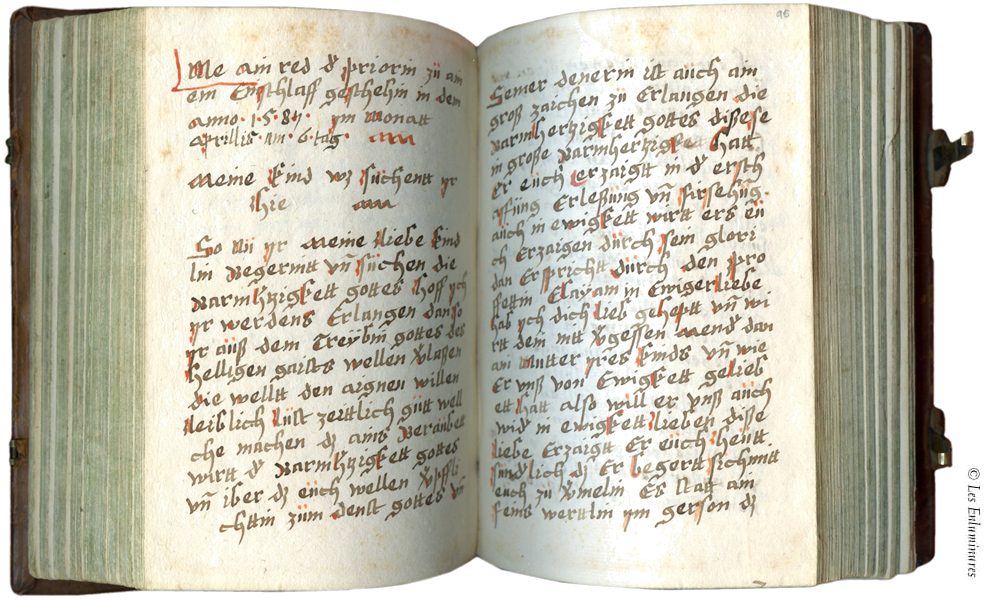 Me ain red dʼ priorin zu am
ein Enschlaff geschehin in dem
anno · 1 · 5 · 87 · ym monatt
aprillis am · 6 · tag ·
meine kind wz suchentt yr
hie
So Nü yr meine liebe kind
lin Begerintt vn̄ süchen die
Barmhʼtzigkeitt gottes hoff ych
yr werdens Erlangen dan so
yr aüß dem Treybin gottes des
helligen gaists wellen vʼlaßen
die wellt den aignen willen
leiblich lüst zerttlich gütt well
che machen dz ains Beraübett
wirtt dʼ Barmhʼtzigkett gottes
vn̄ iber dz eüch wellen vʼpfli
chttin züm denst gottes vn̄
96
Semer denerin ist aüch ain
groß zaichen zü Erlangen die
Barmhertzigkett gottes disese
in große Barmhertzigkett hatt
Er eüch erzaigtt in dʼ ersch
affüng Erleßüng vn̄ firsehüg·
aüch in ewigkett wirtt ers eü
ch Erzaigen dürch sein glori
dan Er sprichtt dürch den pro
ffettin Esayam in Ewiger liebe
hab ych dich lieb geheptt vn̄ wi
rtt dein nitt vʼgessen wendʼ dan
ain mutter yres kinds vn̄ wie
Er vnß von Ewigkett gelieb
ett hatt also will er vnß aüch
widʼ in ewigkett lieben diße
liebe Erzaigtt Er eüch heütt
sündʼlich dz Er begertt sich mitt
eüch zü vʼmelin Es statt ain
feins werttlin ym gerson dz
© Les Enluminures